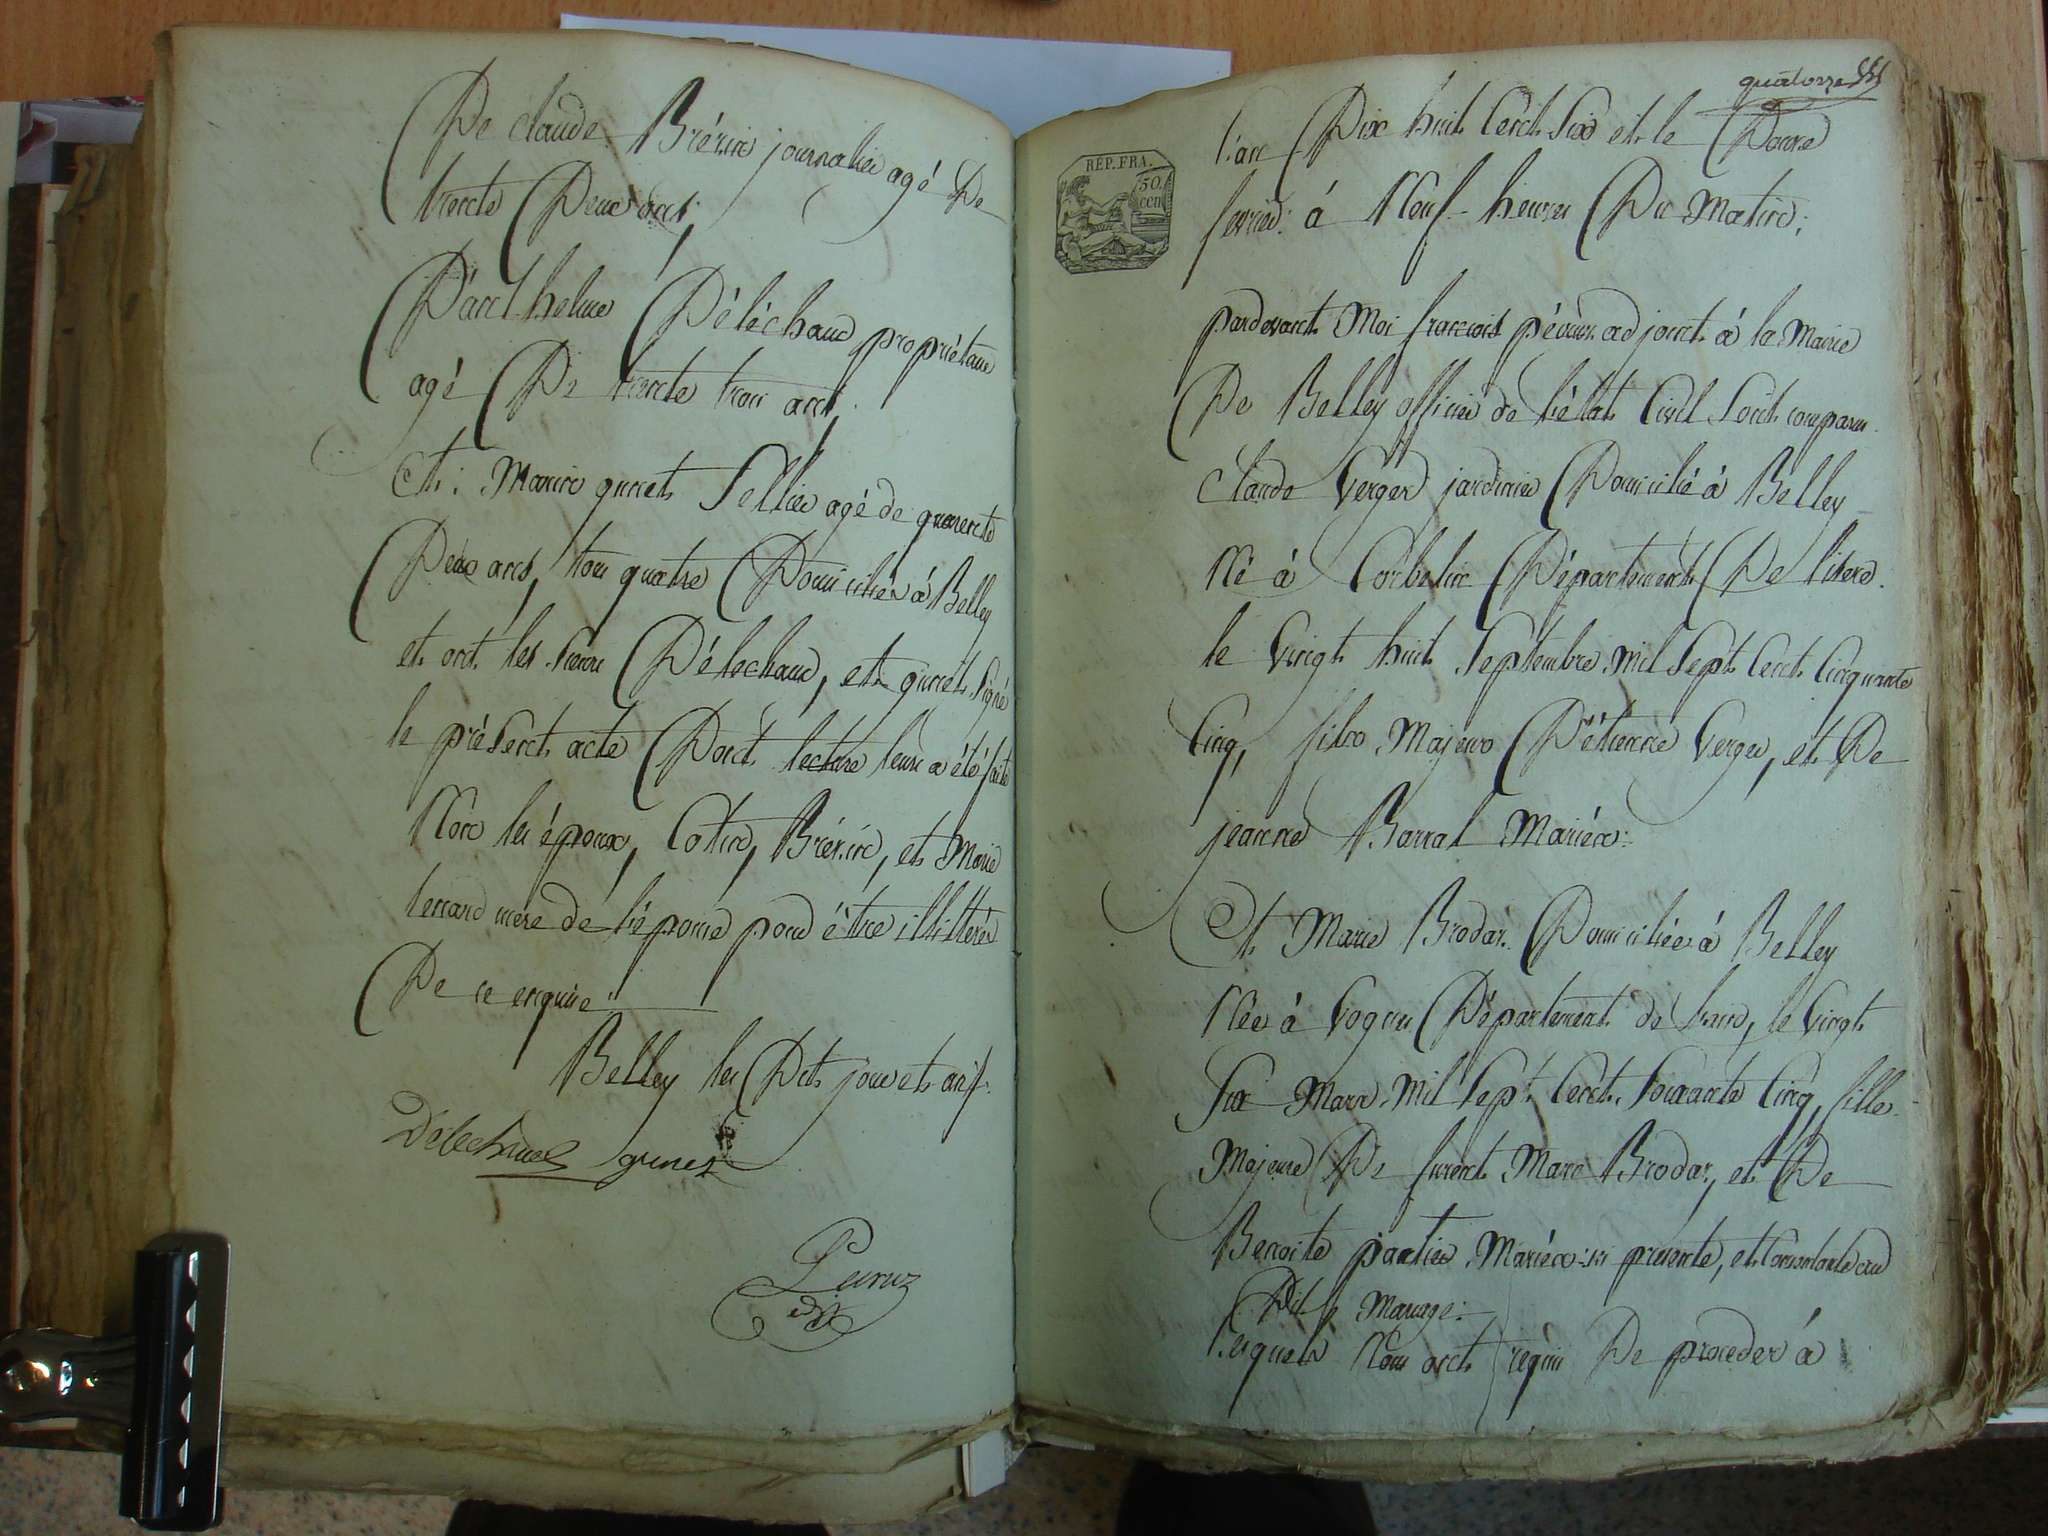 De claude Brénin journalier agé De
trente Deux ans;
D'anthelme Déléchaud propriétaire
agé De trente trois ans,
Et: Marin gunet Sellier agé de quarente
Deux ans, tous quatre Domiciliés á Belley
et ont les Sieurs Délechaud, et gunet Signé
le présent acte Dont lecture leur a été faite
Non les époux, Cotin, Brénin, et Marie
mere de l'épouse pour être illitterés
De ce enquis:
Belley les Dits jour et an:
Délechaud gunet
quatorze
RÉP. FRA.
50.
cen
l'an Dix huit Cent Six et le Douze
fevrier: á Neuf heures Du Matin;
pardevant Moi francois adjoint á la Mairie
De Belley officier de l'état Civil Sont comparus
Claude Verger jardinier Domicilié á Belley
Né á Corbelin Département De l'isere
le Vingt huit Septembre Mil Sept Cent Cinquante
Cinq, fils Majeur D'étienne Verger, et De
jeanne Barral Mariés:
Et Marie Brodar Domiciliée á Belley
Née á Département de l'ain, le Vingt
Six Mars Mil Sept Cent Soixante Cinq, fille
Majeure De Marc Brodar, et De
Benoite Mariés: ici presente, et Consentante au
Dit Mariage:
lesquels Nous ont requis De proceder á